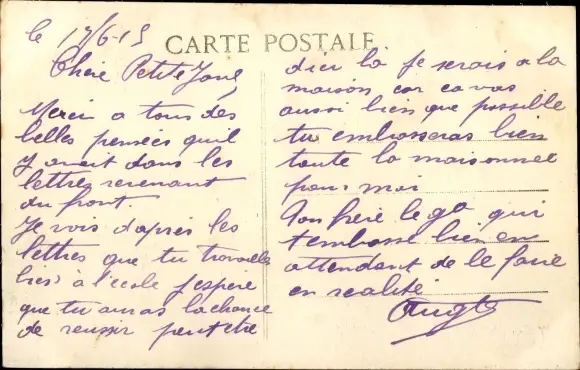 le 17/6-15
CARTE POSTALE
Chère Petite
Merci a tous des
belles pensées quil
y avait dans les
lettres revenant
du front.
Je vois d'après les
lettres que tu travaille
bien à l'école j'espère
que tu auras la chance
de reussir peut etre
dici là je serais a la
maison car ca vas
aussi bien que possible
tu embrasseras bien
toute la maisonnee
pour moi
Ton frère le qui
t'embrasse bien en
attendant de le faire
en realité